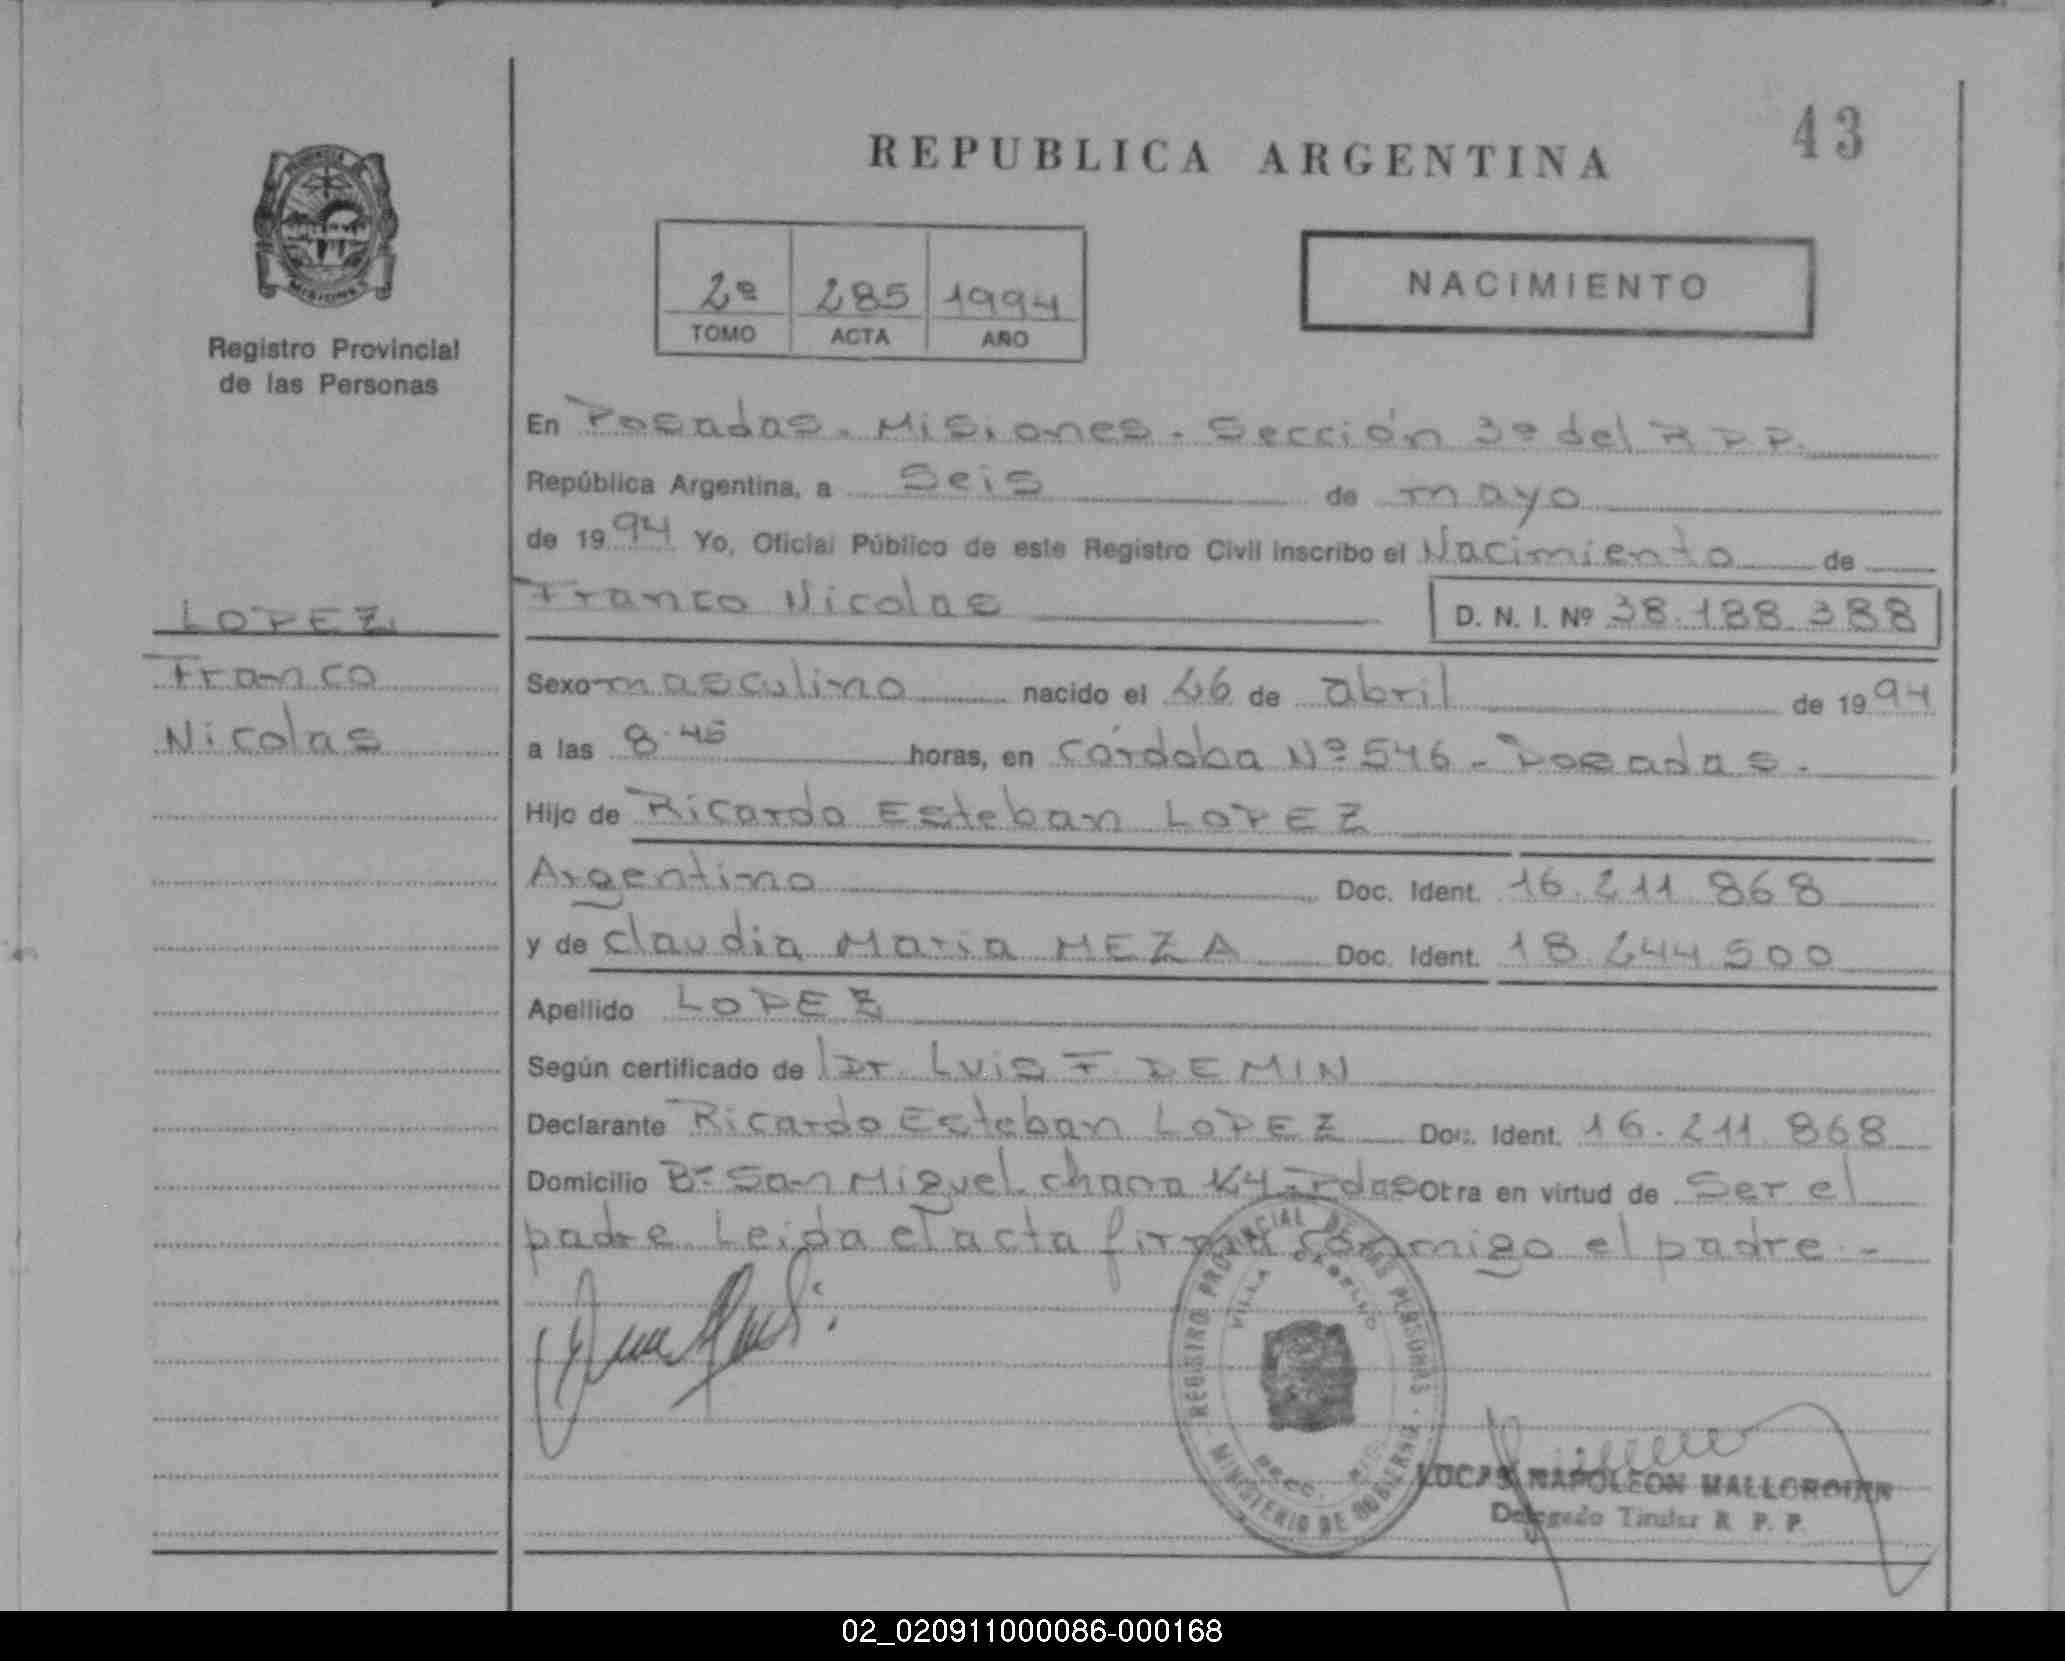 REPUBLICA ARGENTINA
43
MISIONES
Registro Provincial
de las Personas
2º 285 1994
TOMO ACTA AÑO
NACIMIENTO
En Posadas. Misiones. Sección 3º del R P P.
República Argentina, a Seis de mayo
de 1994 Yo, Oficial Público de este Registro Civil inscribo el Nacimiento de
Franco Nicolas D. N. I. Nº 38.188.388
LOPEZ.
Franco
Nicolas
Sexo masculino nacido el 26 de abril de 1994
a las 8.45 horas, en Córdoba Nº 546 - Posadas.
Hijo de Ricardo Esteban LOPEZ
Argentino Doc. Ident. 16.211.868
y de Claudia Maria MEZA Doc. Ident. 18.244.500
Apellido LOPEZ
Según certificado de Dr. Luis F DEMIN
Declarante Ricardo Esteban LOPEZ Doc. Ident. 16.211.868
Domicilio Bº San Miguel. chacra K4 - Pdas Otra en virtud de Ser el
padre. Leida el acta firma conmigo el padre.-
REGISTRO PROVINCIAL DE LAS PERSONAS
VILLA
MINISTERIO DE GOBIERNO
LUCAS NAPOLEON MALLORQUIN
Delegado Titular R. P. P.
02_020911000086-000168